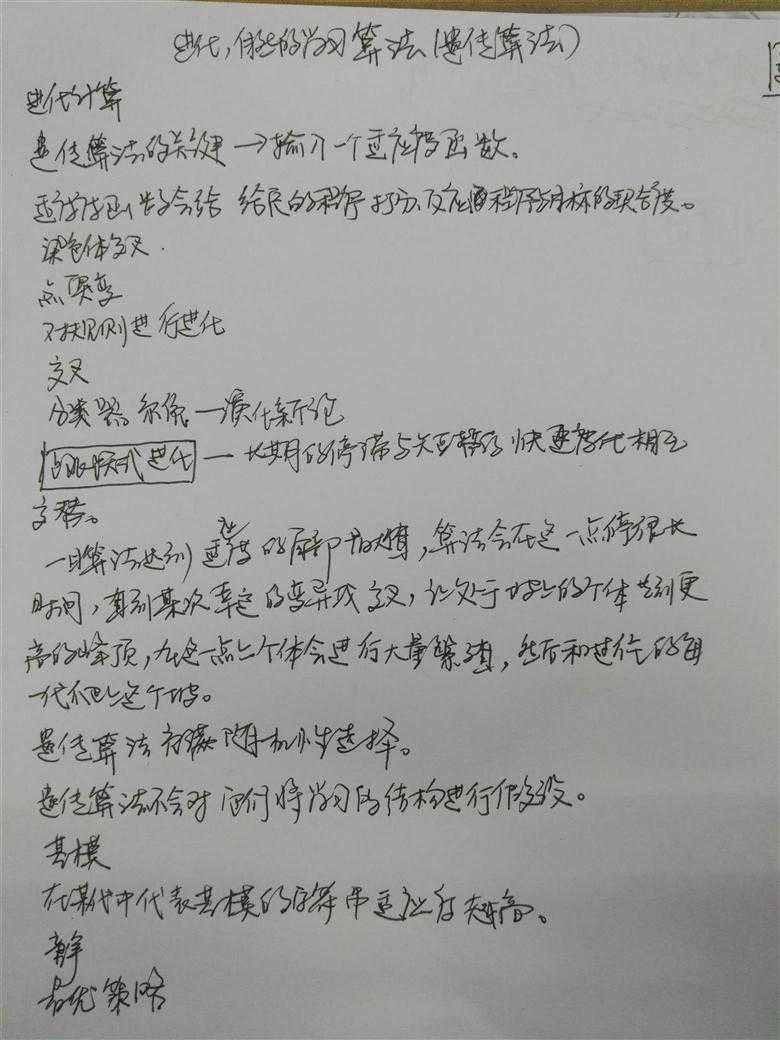 进化,自然的学习算法(遗传算法)
进化计算
遗传算法的关键→输入一个适应度函数。
适应度函数会给 给定的程序 打分,反应程序与目标的契合度。
染色体交叉.
点突变
对规则进行进化
交叉
分类器系统—演化新论
间断模式进化 — 长期的停滞与短暂的快速替代相互
交替。
一旦算法达到 适应度的局部最大值,算法会在这一点停很长
时间,直到某次幸运的变异或交叉,让处于坡上的个体达到更
高的峰顶,在这一点上个体会进行大量繁殖,然后和进行的每
一代爬上这个坡。
遗传算法 随机性选择。
遗传算法不会对 何将学习的结构进行假设。
基模
在某代中代表基模的字符串适应度越高。
最优策略